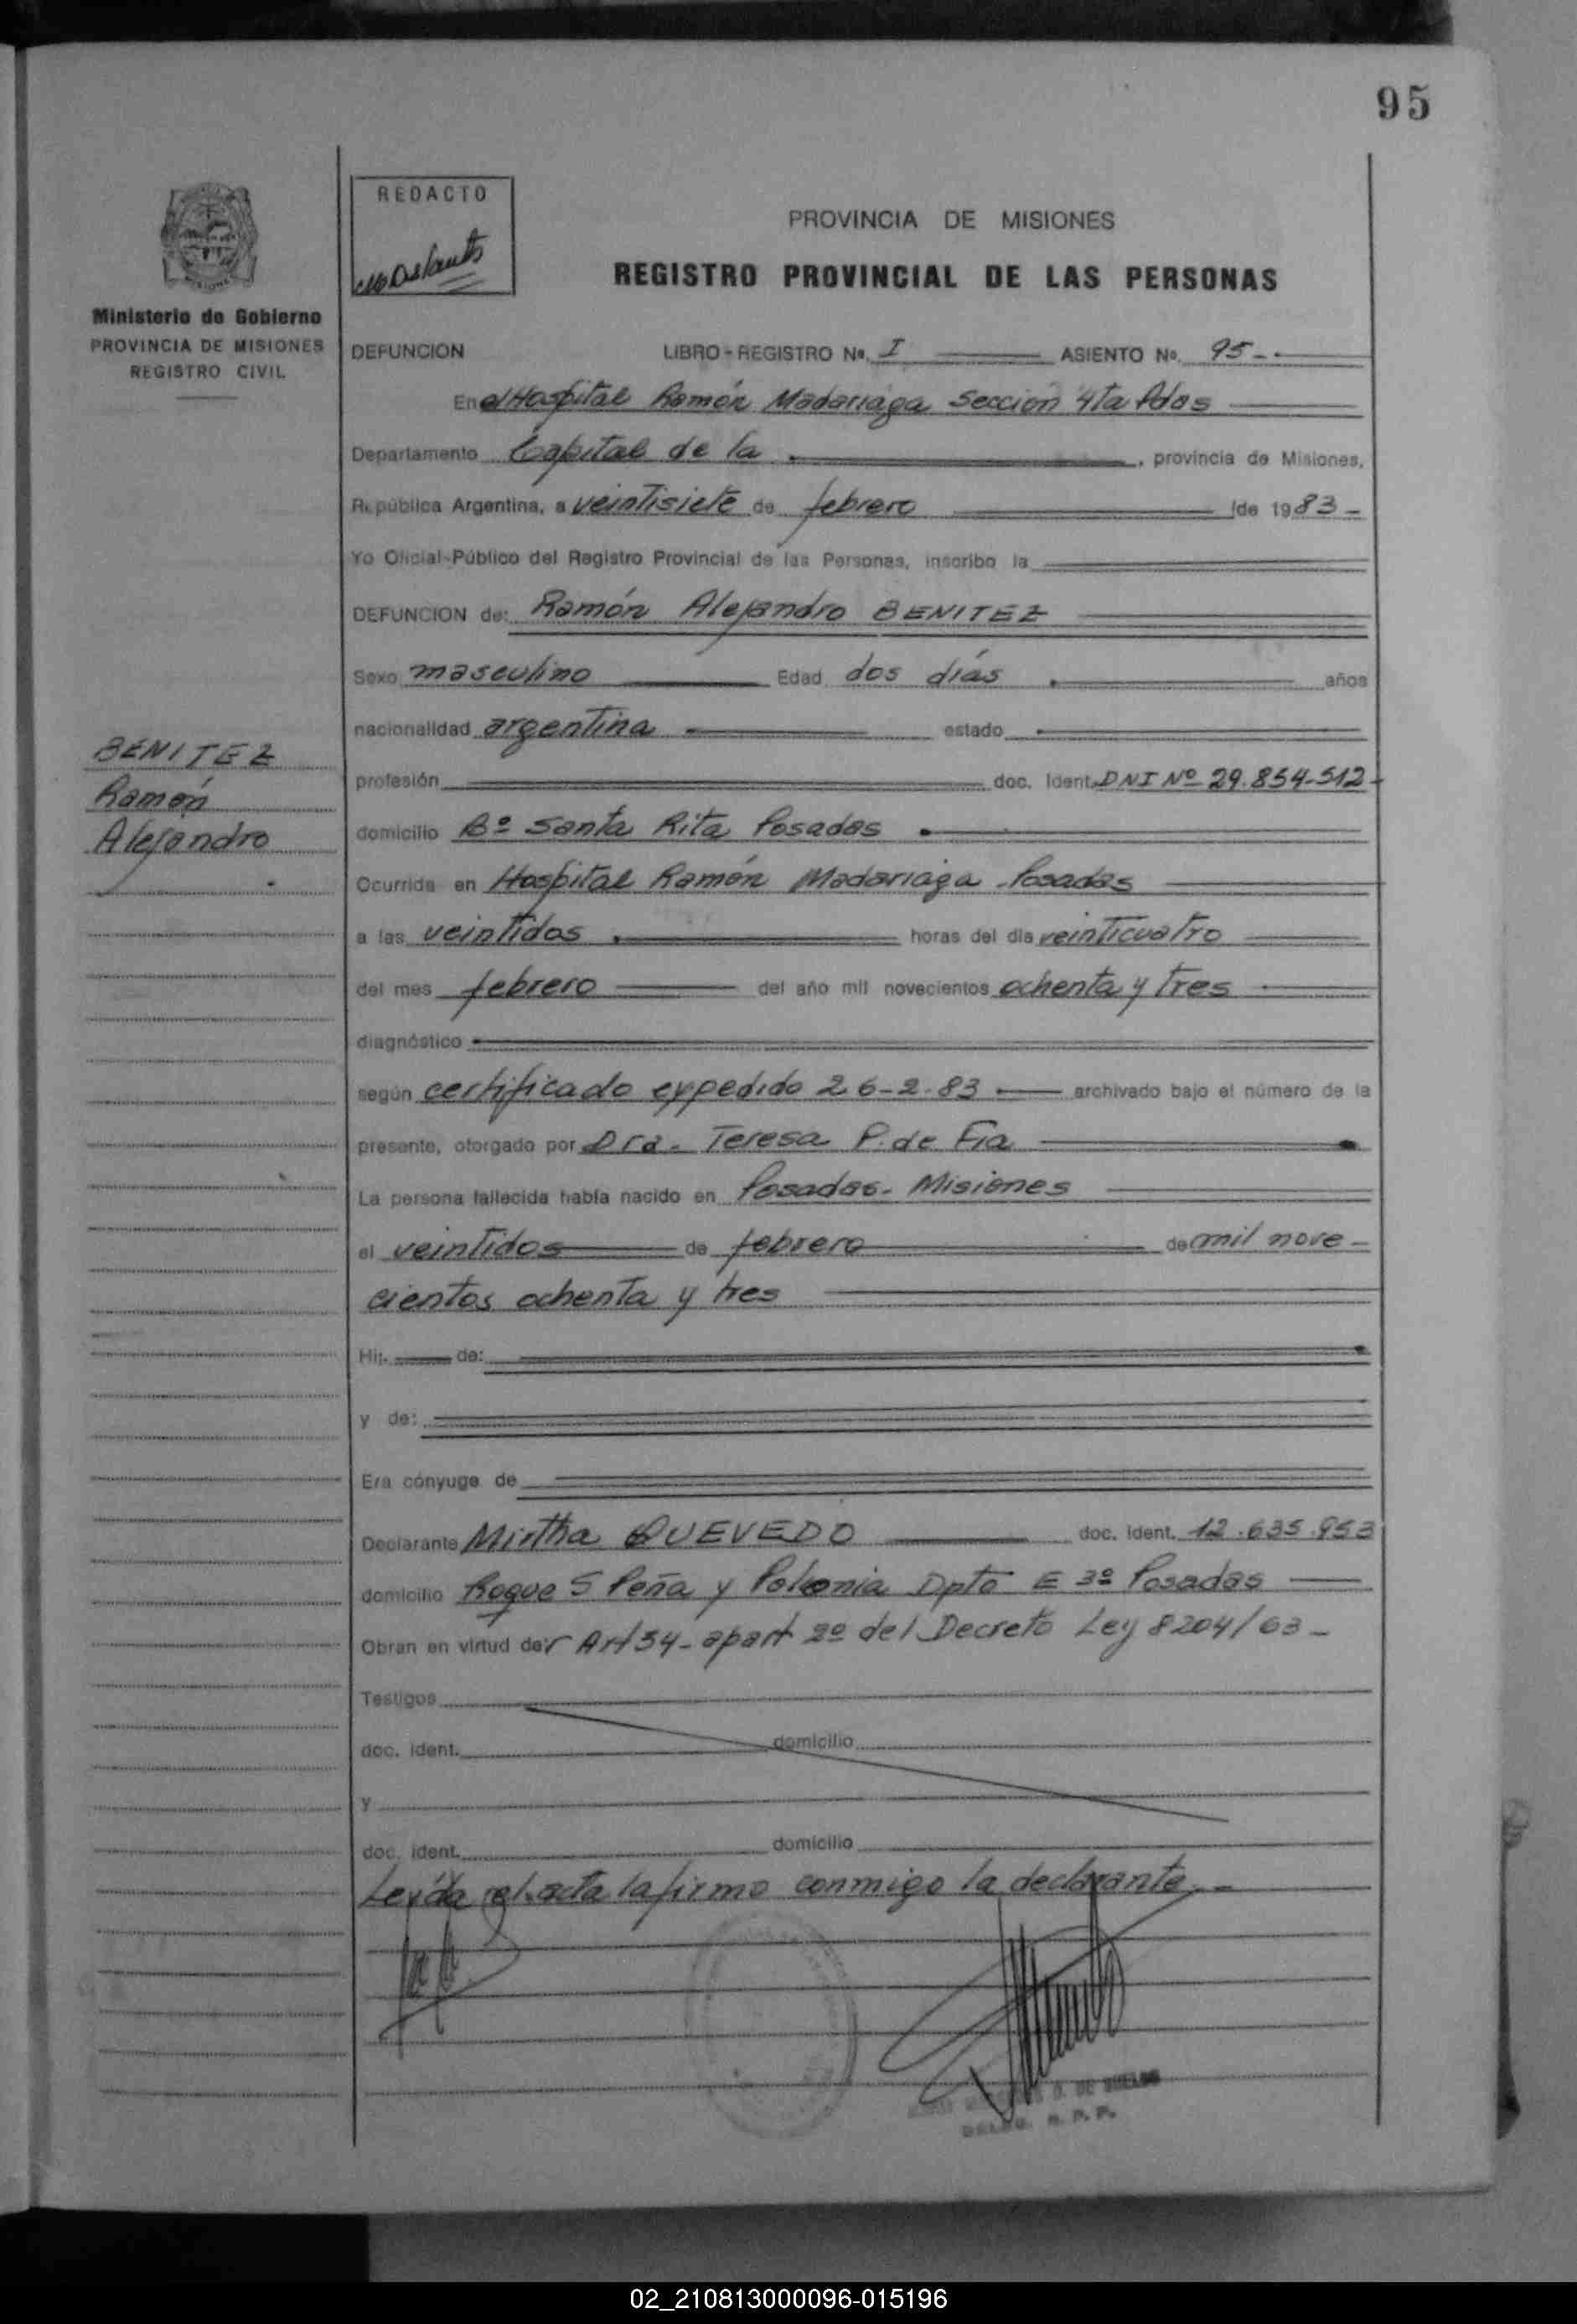 95
REDACTO
PROVINCIA DE MISIONES
REGISTRO PROVINCIAL DE LAS PERSONAS
Ministerio de Gobierno
PROVINCIA DE MISIONES
REGISTRO CIVIL
DEFUNCION LIBRO - REGISTRO Nº. I ASIENTO Nº. 95-.
En el Hospital Ramón Madariaga Sección 4ta Pdas
Departamento Capital de la , provincia de Misiones,
República Argentina, a veintisiete de febrero de 1983-
Yo Oficial Público del Registro Provincial de las Personas, inscribo la
DEFUNCION de: Ramón Alejandro BENITEZ
Sexo masculino Edad dos días años
nacionalidad argentina estado
BENITEZ
Ramón
Alejandro
profesión doc. Ident. DNI Nº 29.854-512-
domicilio Bº Santa Rita Posadas
Ocurrida en Hospital Ramón Madariaga Posadas
a las veintidos horas del día veinticuatro
del mes febrero del año mil novecientos ochenta y tres
diagnóstico
según certificado expedido 26-2-83 archivado bajo el número de la
presente, otorgado por Dra- Teresa P. de Fia
La persona fallecida había nacido en Posadas- Misiones
el veintidos de febrero de mil nove-
cientos ochenta y tres
Hij. de:
y de:
Era cónyuge de
Declarante Mirtha QUEVEDO doc. ident. 12.635.953
domicilio Roque S Peña y Polonia Dpto E 3º Posadas
Obran en virtud del Art 34- apart 2º del Decreto Ley 8204/63-
Testigos
doc. ident. domicilio
y
doc. ident. domicilio
Leída el acta la firma conmigo la declarante.-
D. DE
R. P. P.
02_210813000096-015196